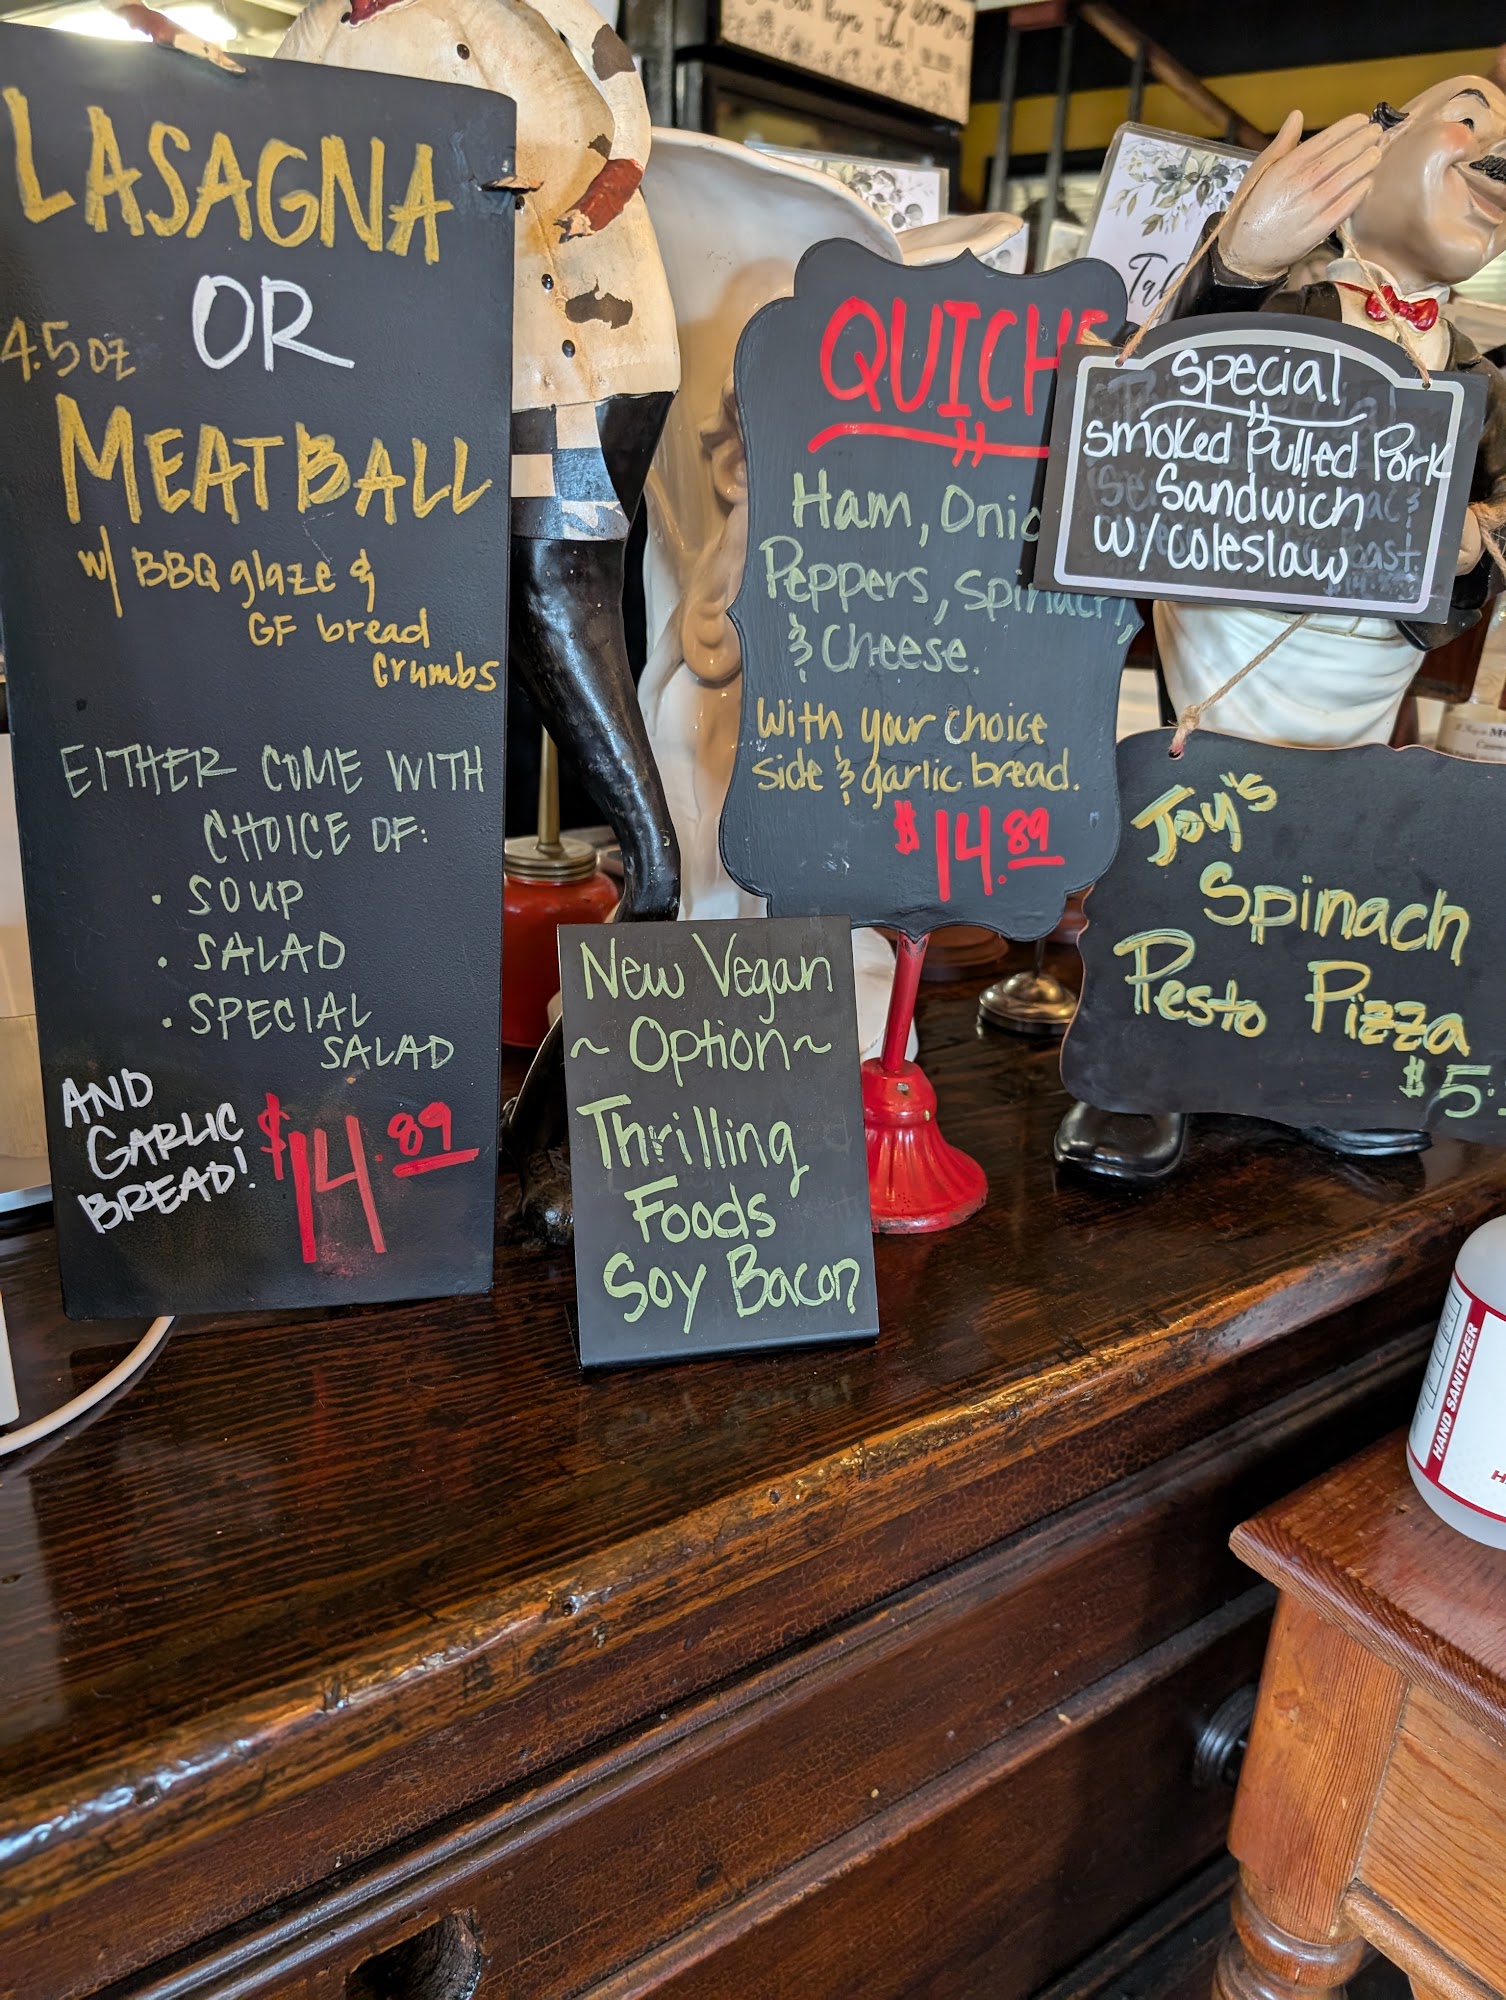 LASAGNA
OR
4.5oz
MEATBALL
w/ BBQ glaze &
GF bread
crumbs
EITHER COME WITH
CHOICE OF:
• SOUP
• SALAD
• SPECIAL
SALAD
AND
GARLIC
BREAD!
$14.89
New Vegan
~ Option ~
Thrilling
Foods
Soy Bacon
QUICHE
Ham, Onio
Peppers, Spinach,
& Cheese.
With your choice
side & garlic bread.
$14.89
Special
Smoked Pulled Pork
Sandwich
w/ Coleslaw
Joy's
Spinach
Pesto Pizza
$5.
HAND SANITIZER